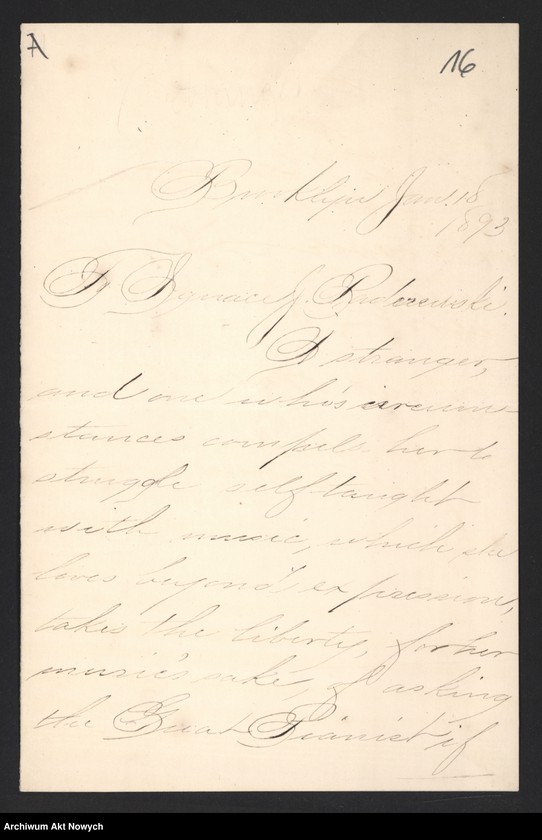 A
16
Brooklyn Jan. 18
1893
Ignace J. Paderewski.
A stranger,
and one who's circum-
stances compels her to
struggle self taught
with music, which she
loves beyond expression,
takes the liberty, for her
music's sake, of asking
the Great Pianist if
Archiwum Akt Nowych